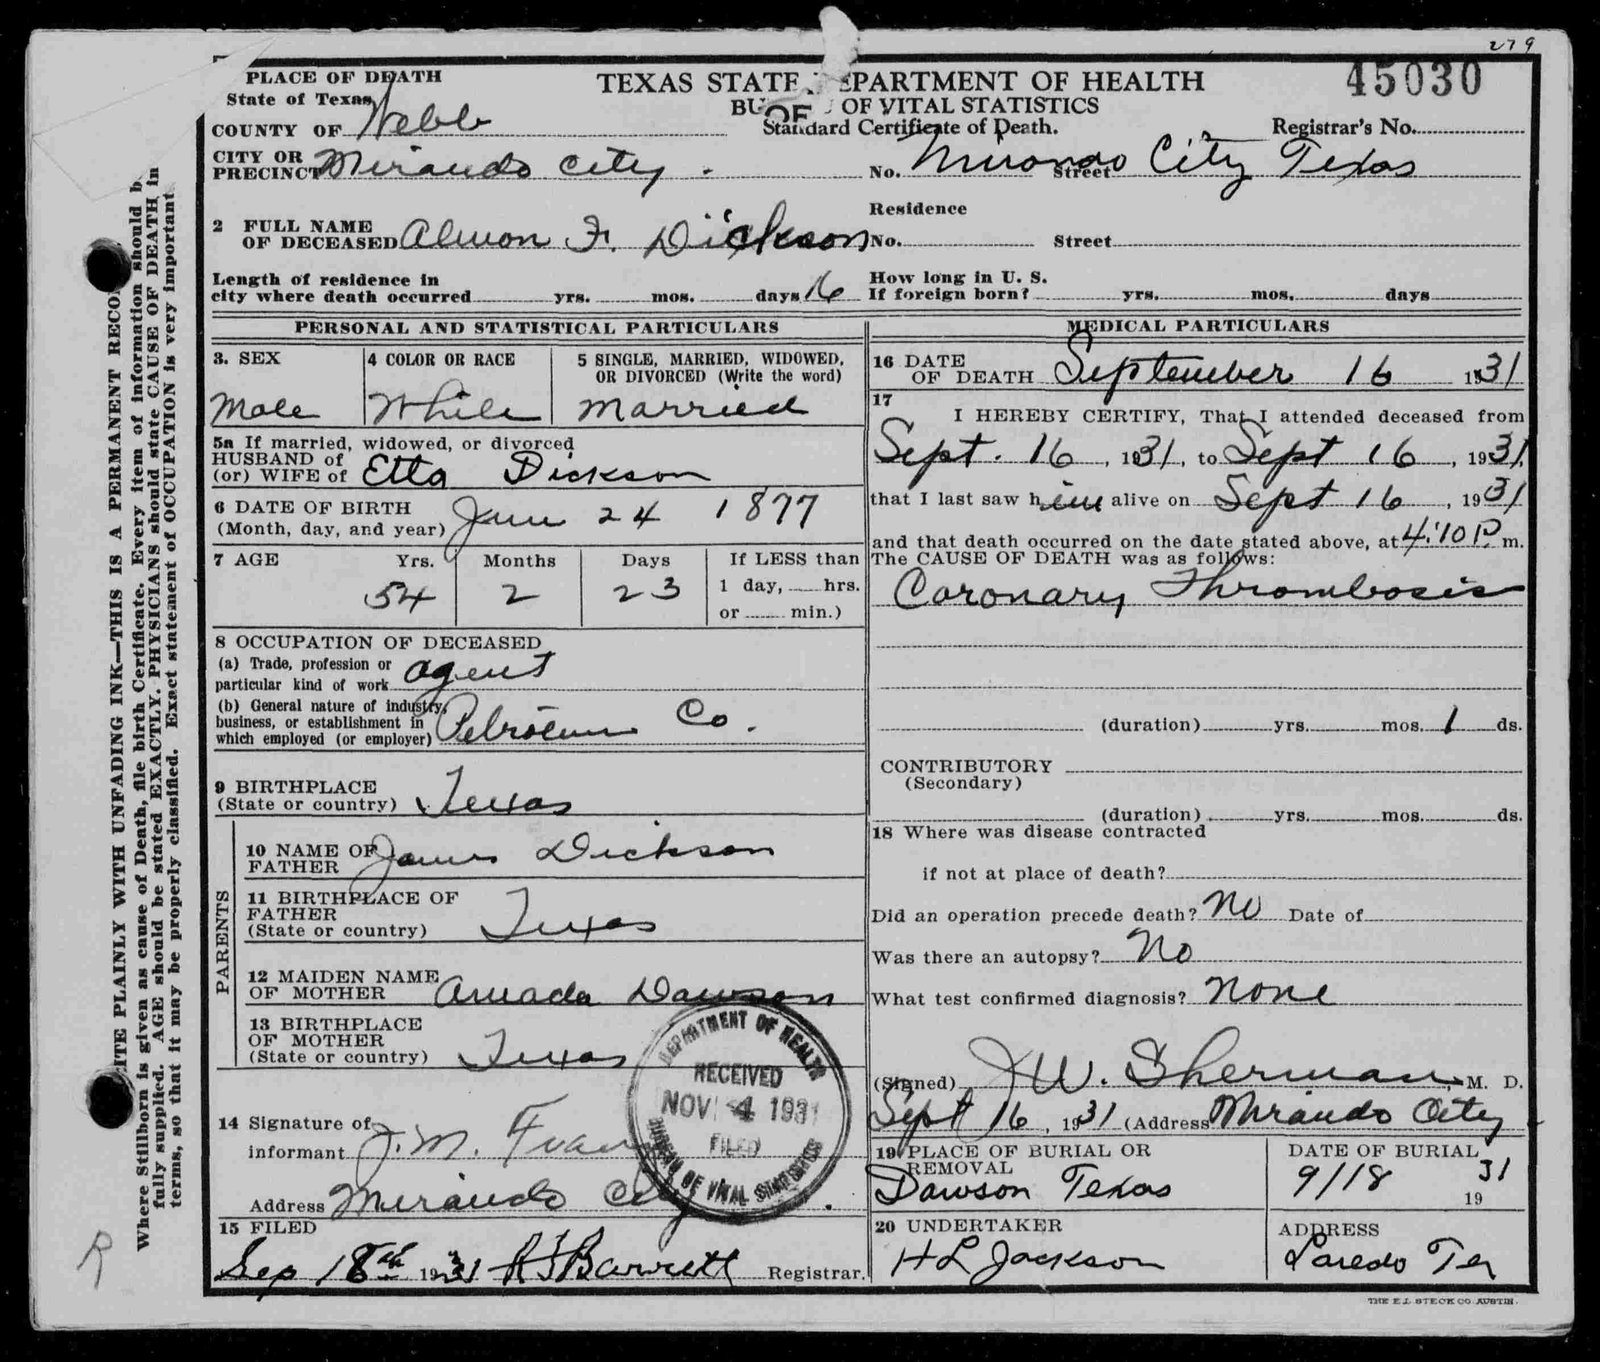 279
PLACE OF DEATH
State of Texas
TEXAS STATE DEPARTMENT OF HEALTH
45030
BU OF VITAL STATISTICS
OF
COUNTY OF Webb
Standard Certificate of Death.
Registrar's No.
CITY OR
PRECINCT Mirando City.
No. Mirando Street City Texas
Residence
2 FULL NAME
OF DECEASED Almon F. Dickson No. Street
Length of residence in
city where death occurred yrs. mos. days 16
How long in U. S.
If foreign born? yrs. mos. days
PERSONAL AND STATISTICAL PARTICULARS
3. SEX
4 COLOR OR RACE
5 SINGLE, MARRIED, WIDOWED,
OR DIVORCED (Write the word)
Male White Married
5a If married, widowed, or divorced
HUSBAND of
(or) WIFE of Etta Dickson
6 DATE OF BIRTH
(Month, day, and year) June 24 1877
7 AGE Yrs. Months Days If LESS than
54 2 23 1 day, hrs.
or min.)
8 OCCUPATION OF DECEASED
(a) Trade, profession or
particular kind of work agent
(b) General nature of industry,
business, or establishment in
which employed (or employer) Petroleum Co.
9 BIRTHPLACE
(State or country) Texas
PARENTS
10 NAME OF
FATHER James Dickson
11 BIRTHPLACE OF
FATHER
(State or country) Texas
12 MAIDEN NAME
OF MOTHER Amada Dawson
13 BIRTHPLACE
OF MOTHER
(State or country) Texas
14 Signature of
informant J. M. Evans
Address Mirando City.
15 FILED
Sep 18th 1931 R J Barrett Registrar.
DEPARTMENT OF HEALTH
RECEIVED
NOV 4 1931
FILED
BUREAU OF VITAL STATISTICS
MEDICAL PARTICULARS
16 DATE
OF DEATH September 16 1931
17
I HEREBY CERTIFY, That I attended deceased from
Sept. 16, 1931, to Sept 16, 1931,
that I last saw him alive on Sept 16, 1931
and that death occurred on the date stated above, at 4:10 P. m.
The CAUSE OF DEATH was as follows:
Coronary Thrombosis
(duration) yrs. mos. 1 ds.
CONTRIBUTORY
(Secondary)
(duration) yrs. mos. ds.
18 Where was disease contracted
if not at place of death?
Did an operation precede death? No Date of
Was there an autopsy? No
What test confirmed diagnosis? None
(Signed) J W. Sherman, M. D.
Sept 16, 1931 (Address Mirando City
19 PLACE OF BURIAL OR
REMOVAL
Dawson Texas
DATE OF BURIAL
9/18 1931
20 UNDERTAKER
H L Jackson
ADDRESS
Laredo Tex
THE E.L. STECK CO. AUSTIN.
ITE PLAINLY WITH UNFADING INK—THIS IS A PERMANENT RECO
Where Stillborn is given as cause of Death, file birth Certificate. Every item of information should b
fully supplied. AGE should be stated EXACTLY. PHYSICIANS should state CAUSE OF DEATH in
terms, so that it may be properly classified. Exact statement of OCCUPATION is very important
R